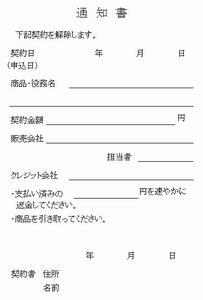 通 知 書
下記契約を解除します。
契約日 年 月 日
(申込日)
商品・役務名
契約金額 円
販売会社
担当者
クレジット会社
・支払い済みの 円を速やかに
返金してください。
・商品を引き取ってください。
年 月 日
契約者 住所
名前